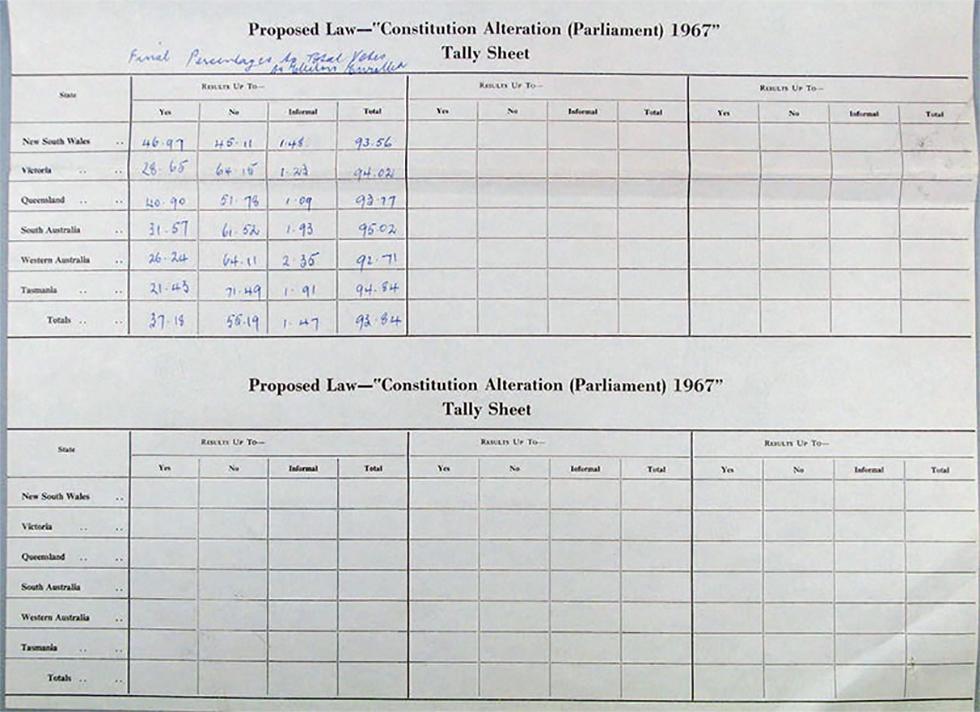 Proposed Law—"Constitution Alteration (Parliament) 1967"
Tally Sheet
Final Percentages to Total Votes
Electors Enrolled
State Results Up To— Results Up To— Results Up To—
Yes No Informal Total Yes No Informal Total Yes No Informal Total
New South Wales .. 46.97 45.11 1.48 93.56
Victoria .. .. 28.65 64.15 1.23 94.02
Queensland .. .. 40.90 51.78 1.09 93.77
South Australia .. 31.57 61.52 1.93 95.02
Western Australia .. 26.24 64.11 2.35 92.71
Tasmania .. .. 21.43 71.49 1.91 94.84
Totals .. .. 37.18 55.19 1.47 93.84
Proposed Law—"Constitution Alteration (Parliament) 1967"
Tally Sheet
State Results Up To— Results Up To— Results Up To—
Yes No Informal Total Yes No Informal Total Yes No Informal Total
New South Wales ..
Victoria .. ..
Queensland .. ..
South Australia ..
Western Australia ..
Tasmania .. ..
Totals .. ..